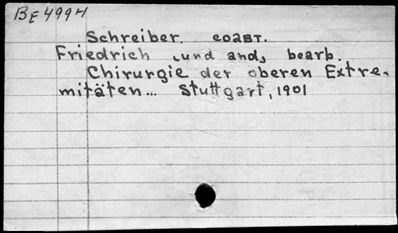 BE4994
Schreiber. соавт.
Friedrich (und and) bearb.
Chirurgie der oberen Extre-
mitäten... Stuttgart, 1901